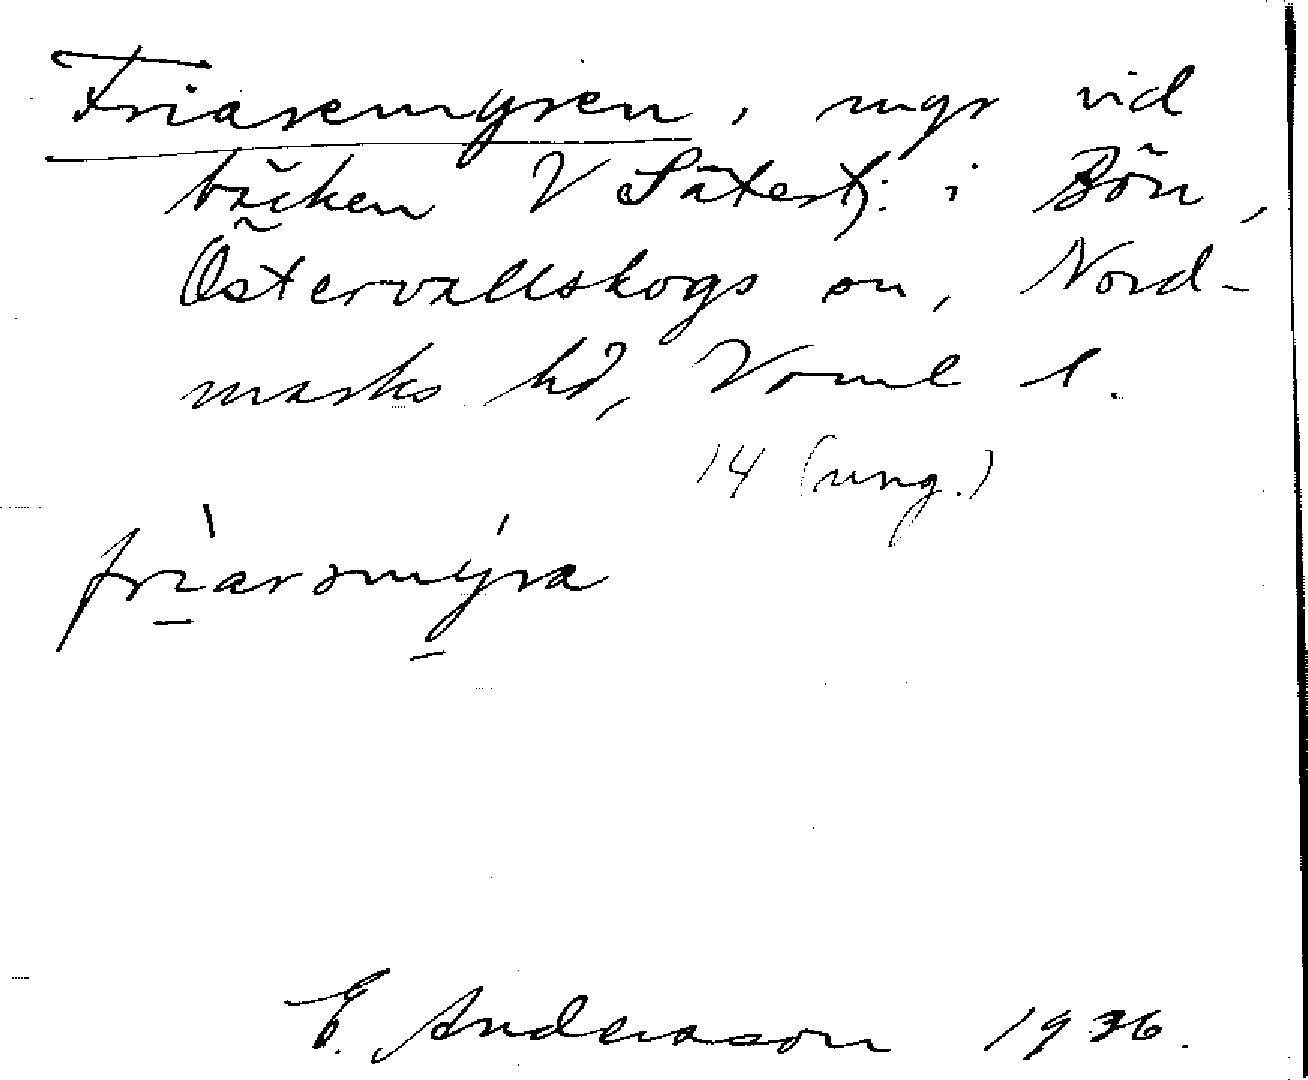 Friaremyren, myr vid
bäcken V Sätertj: i Bön,
Östervallskogs sn, Nord-
marks hd, Vrml l.
14 (ung.)
friarəmyra
E. Andersson 1936.